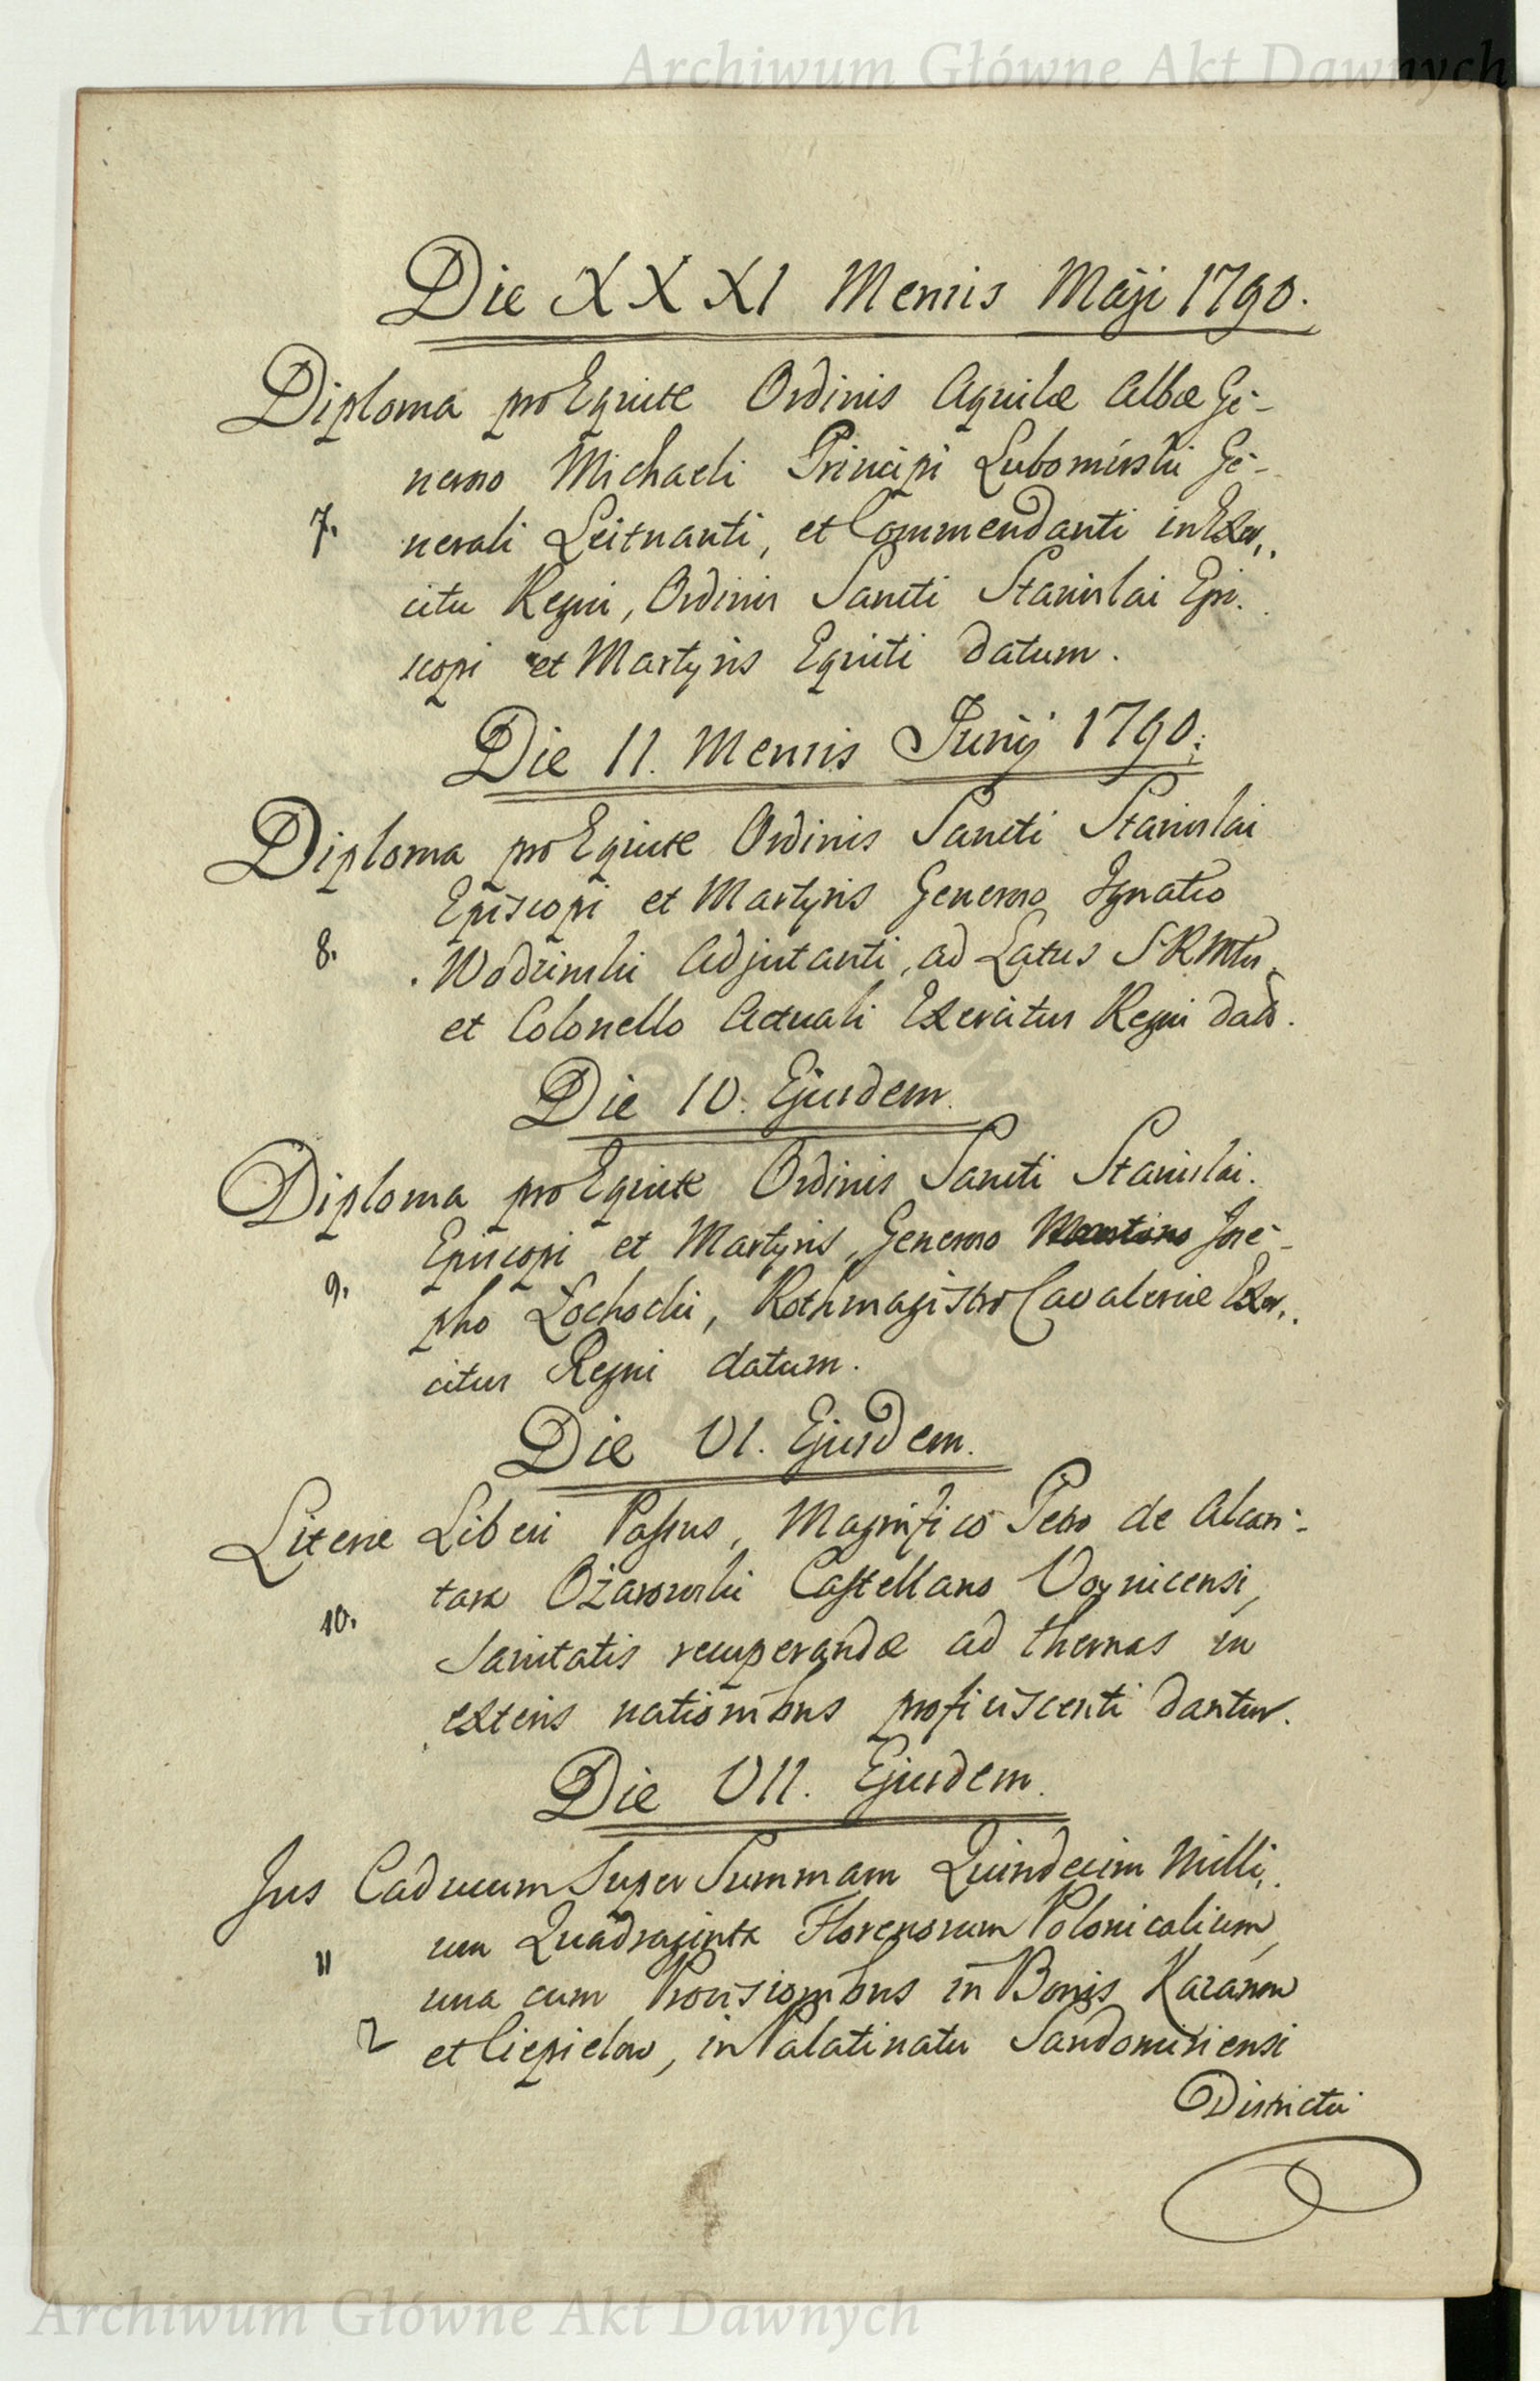 Archiwum Główne Akt Dawnych
Die XXXI Mensis Maji 1790.
Diploma pro Equite Ordinis Aquilæ Albæ Ge-
neroso Michaeli Principi Lubomirski Ge-
7. nerali Leitnanti, et Commendanti in Exer,,
citu Regni, Ordinis Sancti Stanislai Epi-
scopi et Martyris Equiti datum.
Die 11. Mensis Junij 1790.
Diploma pro Equite Ordinis Sancti Stanislai
Episcopi et Martyris Generoso Ignatio
8. Wodzinski Adjutanti, ad Latus SRMtis
et Colonello Actuali Exercitus Regni dato.
Die 10. Ejusdem.
Diploma pro Equite Ordinis Sancti Stanislai.
Episcopi et Martyris, Generoso Martino Jose-
9. pho Żochocki, Rothmagistro Cavaleriæ Exer,,
citus Regni datum.
Die VI. Ejusdem.
Literæ Liberi Passus, Magnifico Petro de Alcan-
tara Ożarowski Castellano Voynicensi,
10.
Sanitatis recuperandæ ad thermas in
exteris nationibus proficiscenti dantur.
Die VII. Ejusdem.
Jus Caducum Super Summam Quindecim Milli,,
11 um Quadraginta Florenorum Polonicalium,
una cum Provisionibus in Bonis Kazanow
et Ciepielow, in Palatinatu Sandomiriensi
Districtu
Archiwum Główne Akt Dawnych